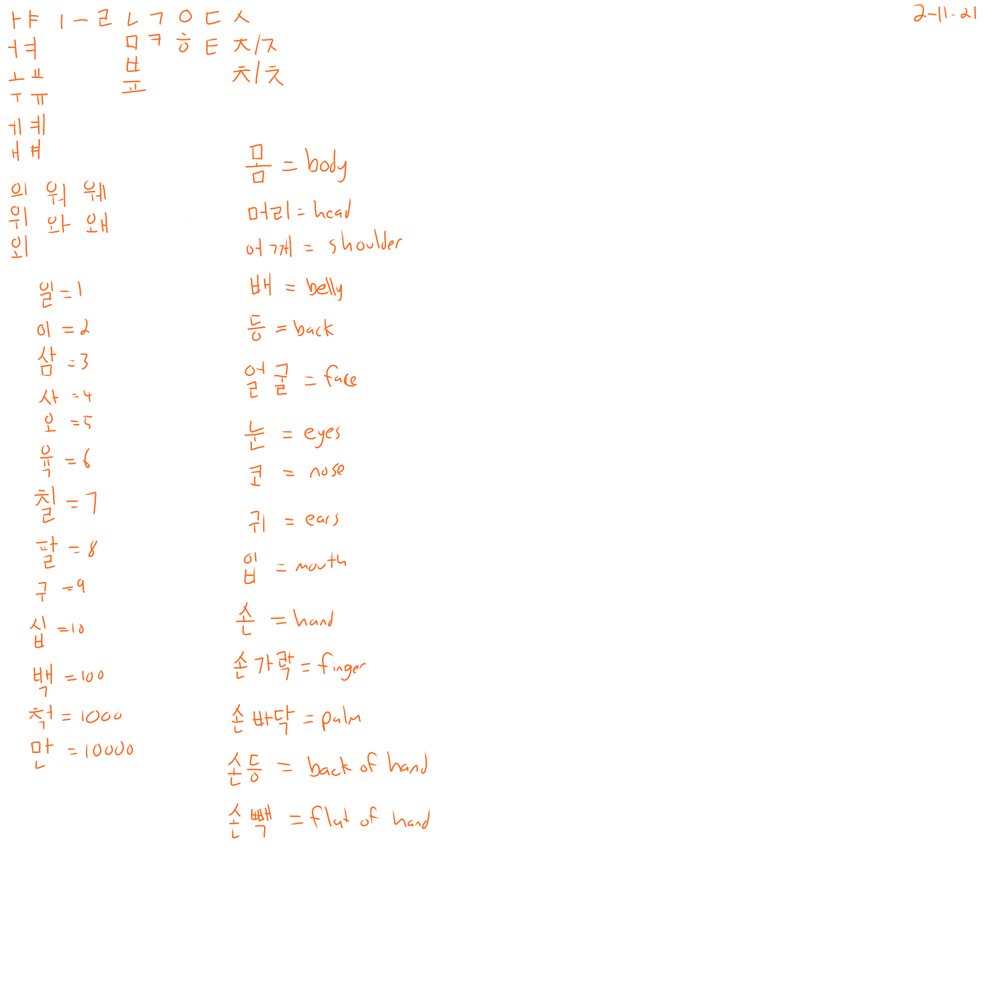 2-11-21
ㅏㅑ ㅣㅡㄹㄴㄱㅇㄷㅅ
ㅓㅕ ㅁㅋㅎㅌㅈ/ㅈ
ㅗㅛ ㅂ ㅊ/ㅊ
ㅜㅠ ㅍ
ㅔㅖ
ㅐㅒ
의 워 웨
위 와 왜
외
일=1
이=2
삼=3
사=4
오=5
육=6
칠=7
팔=8
구=9
십=10
백=100
척=1000
만=10000
몸=body
머리=head
어께=shoulder
배=belly
등=back
얼굴=face
눈=eyes
코=nose
귀=ears
입=mouth
손=hand
손가락=finger
손바닥=palm
손등=back of hand
손빽=flat of hand